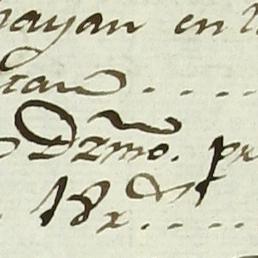 payan en l
tan . . . .
Dzmo. pr
18x . . . .